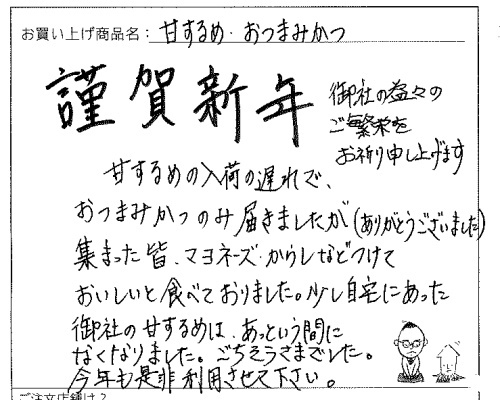 お買い上げ商品名： 甘するめ・おつまみかつ
謹賀新年
御社の益々の
ご繁栄を
お祈り申し上げます
甘するめの入荷の遅れで、
おつまみかつのみ届きましたが(ありがとうございました)
集まった皆、マヨネーズ・からしなどつけて
おいしいと食べておりました。少し自宅にあった
御社の甘するめは、あっという間に
なくなりました。ごちそうさまでした。
今年も是非利用させて下さい。